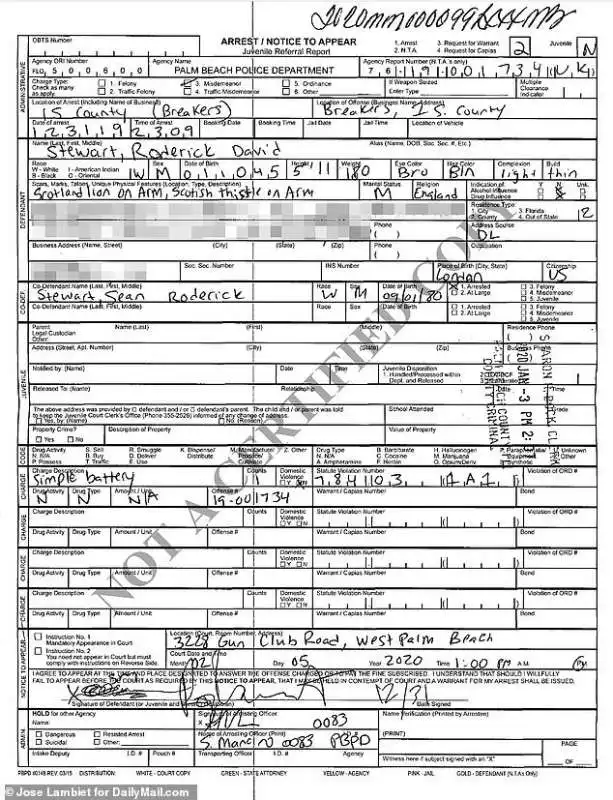 OBTS Number
ARREST / NOTICE TO APPEAR
Juvenile Referral Report
1. Arrest 3. Request for Warrant
2. N.T.A. 4. Request for Capias
2
Juvenile N
ADMINISTRATIVE
Agency ORI Number
FLO 5 0 0 6 0 0
Agency Name
PALM BEACH POLICE DEPARTMENT
Agency Report Number (N.T.A.'s only)
Charge Type:
Check as many as apply.
1. Felony 3. Misdemeanor 5. Ordinance
2. Traffic Felony 4. Traffic Misdemeanor 6. Other
If Weapon Seized
Enter Type
Multiple Clearance Indicator
Location of Arrest (Including Name of Business)
1 S. County (Breakers)
Location of Offense (Business Name, Address)
Breakers, 1 S. County
Date of arrest Time of Arrest Booking Date Booking Time Jail Date Jail Time Location of Vehicle
1 2 3 1 1 9 2 3 0 9
DEFENDANT
Name (Last, First, Middle) Alias (Name, DOB, Soc. Sec. #, Etc.)
Stewart, Roderick David
Race Sex Date of Birth Height Weight Eye Color Hair Color Complexion Build
W - White I - American Indian
B - Black O - Oriental
W M 0 1 1 0 4 5 5 11 180 Bro Bln light thin
Scars, Marks, Tattoos, Unique Physical Features (Location, Type, Description) Marital Status Religion
Scotland lion on Arm, Scotish thistle on Arm M England
Indication of Y N Unk.
Alcohol Influence
Drug Influence
Residence Type:
1. City 3. Florida
2. County 4. Out of State
Phone
Address Source
DL
Business Address (Name, Street) (City) (State) (Zip) Phone Occupation
Soc. Sec. Number INS Number Place of Birth (City, State) Citizenship
London US
CO-DEF
Co-Defendant Name (Last, First, Middle) Race Sex Date of Birth
Stewart, Sean Roderick W M 09/01/80
1. Arrested 3. Felony
2. At Large 4. Misdemeanor
5. Juvenile
Co-Defendant Name (Last, First, Middle) Race Sex Date of Birth
1. Arrested 3. Felony
2. At Large 4. Misdemeanor
5. Juvenile
JUVENILE
Parent Name (Last) (First) (Middle) Residence Phone
Legal Custodian
Other:
Address (Street, Apt. Number) (City) (State) (Zip) Business Phone
Notified by: (Name) Date Time Juvenile Disposition
1. Handled/Processed within Dept. and Released
Released To: (Name) Relationship Date Time
The above address was provided by defendant and / or defendant's parent. The child and / or parent was told
to keep the Juvenile Court Clerk's Office informed of any change of address.
Yes, by (Name) No (Reason)
School Attended Grade
Property Crime? Description of Property Value of Property
Yes No
CODE
Drug Activity S. Sell R. Smuggle K. Dispense/ M. Manufacture/ Z. Other
N. N/A B. Buy D. Deliver Distribute Produce/
P. Possess T. Traffic E. Use Cultivate
Drug Type B. Barbiturate H. Hallucinogen P. Paraphernalia/ U. Unknown
N. N/A C. Cocaine M. Marijuana Equipment Z. Other
A. Amphetamine E. Heroin O. Opium/Deriv. S. Synthetic
CHARGE
Charge Description Counts Domestic Violence Statute Violation Number Violation of ORD #
Simple battery 1 Y N
Drug Activity Drug Type Amount / Unit Offense # Warrant / Capias Number Bond
N N N/A 19-001734
CHARGE
Charge Description Counts Domestic Violence Statute Violation Number Violation of ORD #
Y N
Drug Activity Drug Type Amount / Unit Offense # Warrant / Capias Number Bond
CHARGE
Charge Description Counts Domestic Violence Statute Violation Number Violation of ORD #
Y N
Drug Activity Drug Type Amount / Unit Offense # Warrant / Capias Number Bond
CHARGE
Charge Description Counts Domestic Violence Statute Violation Number Violation of ORD #
Y N
Drug Activity Drug Type Amount / Unit Offense # Warrant / Capias Number Bond
NOT A CERTIFIED COPY
NOTICE TO APPEAR
Instruction No. 1
Mandatory Appearance in Court
Instruction No. 2
You need not appear in Court but must
comply with instructions on Reverse Side.
Location (Court, Room Number, Address)
3228 Gun Club Road, West Palm Beach
Court Date and Time
Month 02 Day 05 Year 2020 Time 1:00 pm A.M. PM
I AGREE TO APPEAR AT THE TIME AND PLACE DESIGNATED TO ANSWER THE OFFENSE CHARGED OR TO PAY THE FINE SUBSCRIBED. I UNDERSTAND THAT SHOULD I WILLFULLY
FAIL TO APPEAR BEFORE THE COURT AS REQUIRED BY THIS NOTICE TO APPEAR, THAT I MAY BE HELD IN CONTEMPT OF COURT AND A WARRANT FOR MY ARREST SHALL BE ISSUED.
12/31
Signature of Defendant (or Juvenile and Parent / Custodian) Date Signed
ADMIN.
HOLD for other Agency
Name:
Signature of Arresting Officer
0083
Name Verification (Printed by Arrestee)
Dangerous Resisted Arrest
Suicidal Other:
Name of Arresting Officer (Print)
S. Mancino 0083 PBPD
(PRINT)
PAGE
OF
Intake Deputy I.D. # Pouch # Transporting Officer I.D. # Agency Witness here if subject signed with an "X"
PBPD #0149 REV. 03/15 DISTRIBUTION: WHITE - COURT COPY GREEN - STATE ATTORNEY YELLOW - AGENCY PINK - JAIL GOLD - DEFENDANT (N.T.A.s Only)
© Jose Lambiet for DailyMail.com